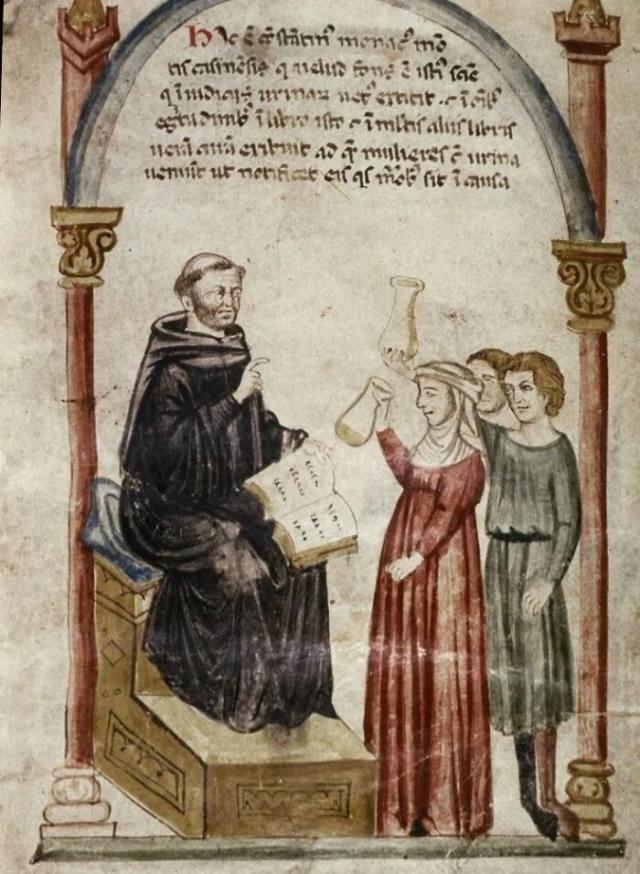 Hic ē ɔstātin' monac' mō
tis casinēsis q̄ uelud fons ē isti' sciē
q̄ ī iudiciis urinar̄ uet' extitit ⁊ ī oīb'
egitudinib' ī libro isto ⁊ ī mltis aliis libris
uerā curā exibuit ad quē mulieres c̄ urina
ueniūt ut notificet eis q̄s morb' sit ī causa